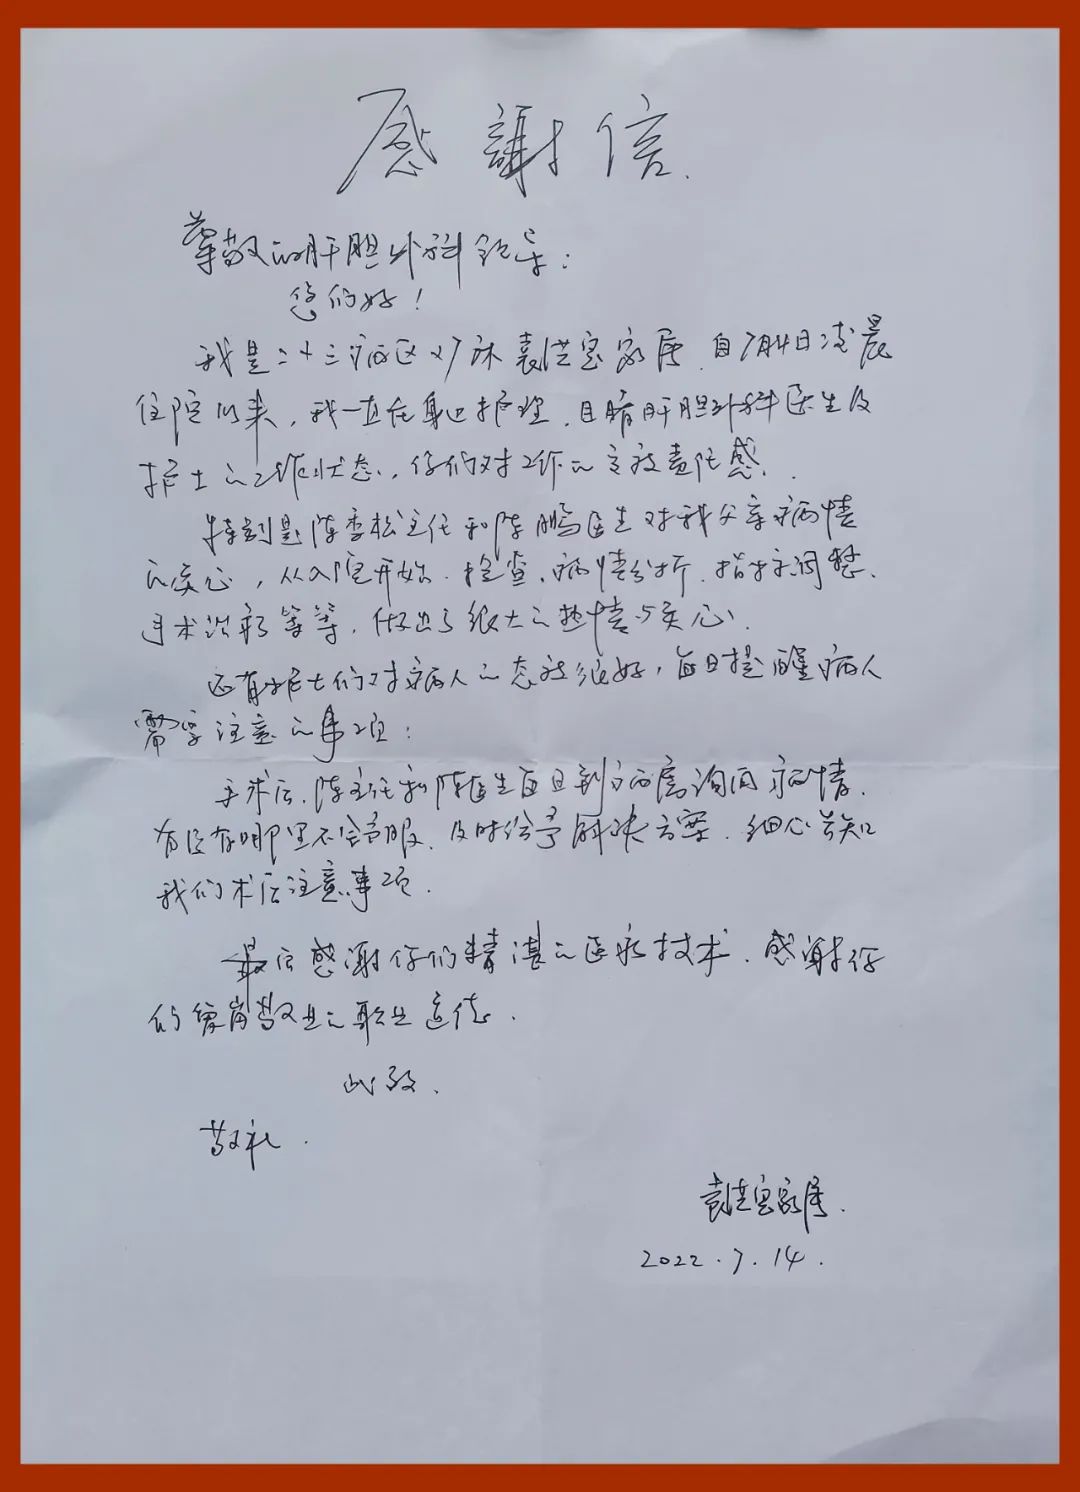 感謝信.
尊敬的肝胆外科领导：
您们好！
我是二十三病区27床袁洪宝家属，自7月4日凌晨
住院以来，我一直在身边护理，目睹肝胆外科医生及
护士的工作状态，你们对工作的高度责任感.
特别是陈孝松主任和陈鹏医生对我父亲病情
的关心，从入院开始.检查.病情分析.指标调整.
手术治疗等等，做出了很大的热情与关心.
还有护士们对病人的态度很好，每日提醒病人
需要注意的事项：
手术后.陈主任和陈医生每日到病房询问病情.
有没有哪里不舒服.及时给予解决方案.细心告知
我们术后注意事项.
最后感謝你们精湛的医疗技术.感謝你
们爱岗敬业的职业道德.
此致.
敬礼.
袁洪宝家属.
2022.7.14.